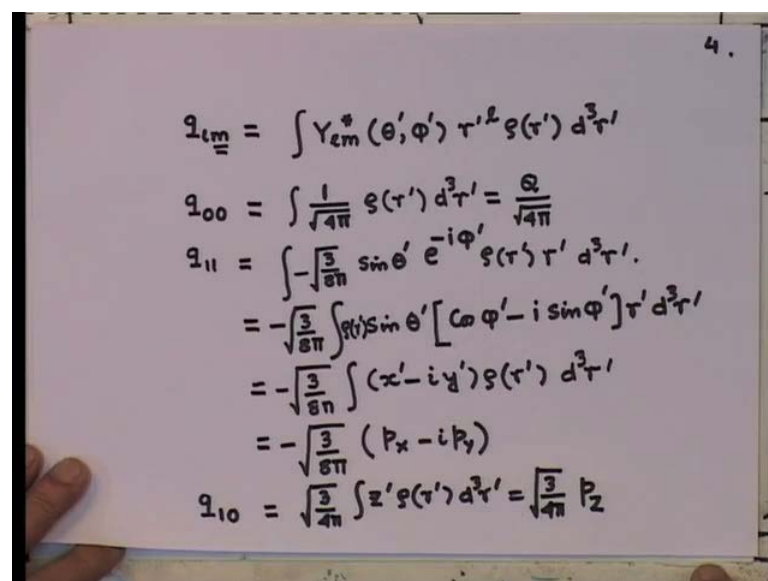 4.
q_{lm} = ∫ Y_{lm}^* (θ', φ') r'^l ρ(r') d³r'
q_{00} = ∫ 1/√4π ρ(r') d³r' = Q/√4π
q_{11} = ∫ -√3/8π sin θ' e^{-iφ'} ρ(r') r' d³r'.
= -√3/8π ∫ ρ(r') sin θ' [Cos φ' - i sin φ'] r' d³r'
= -√3/8π ∫ (x' - iy') ρ(r') d³r'
= -√3/8π (p_x - i p_y)
q_{10} = √3/4π ∫ z' ρ(r') d³r' = √3/4π p_z